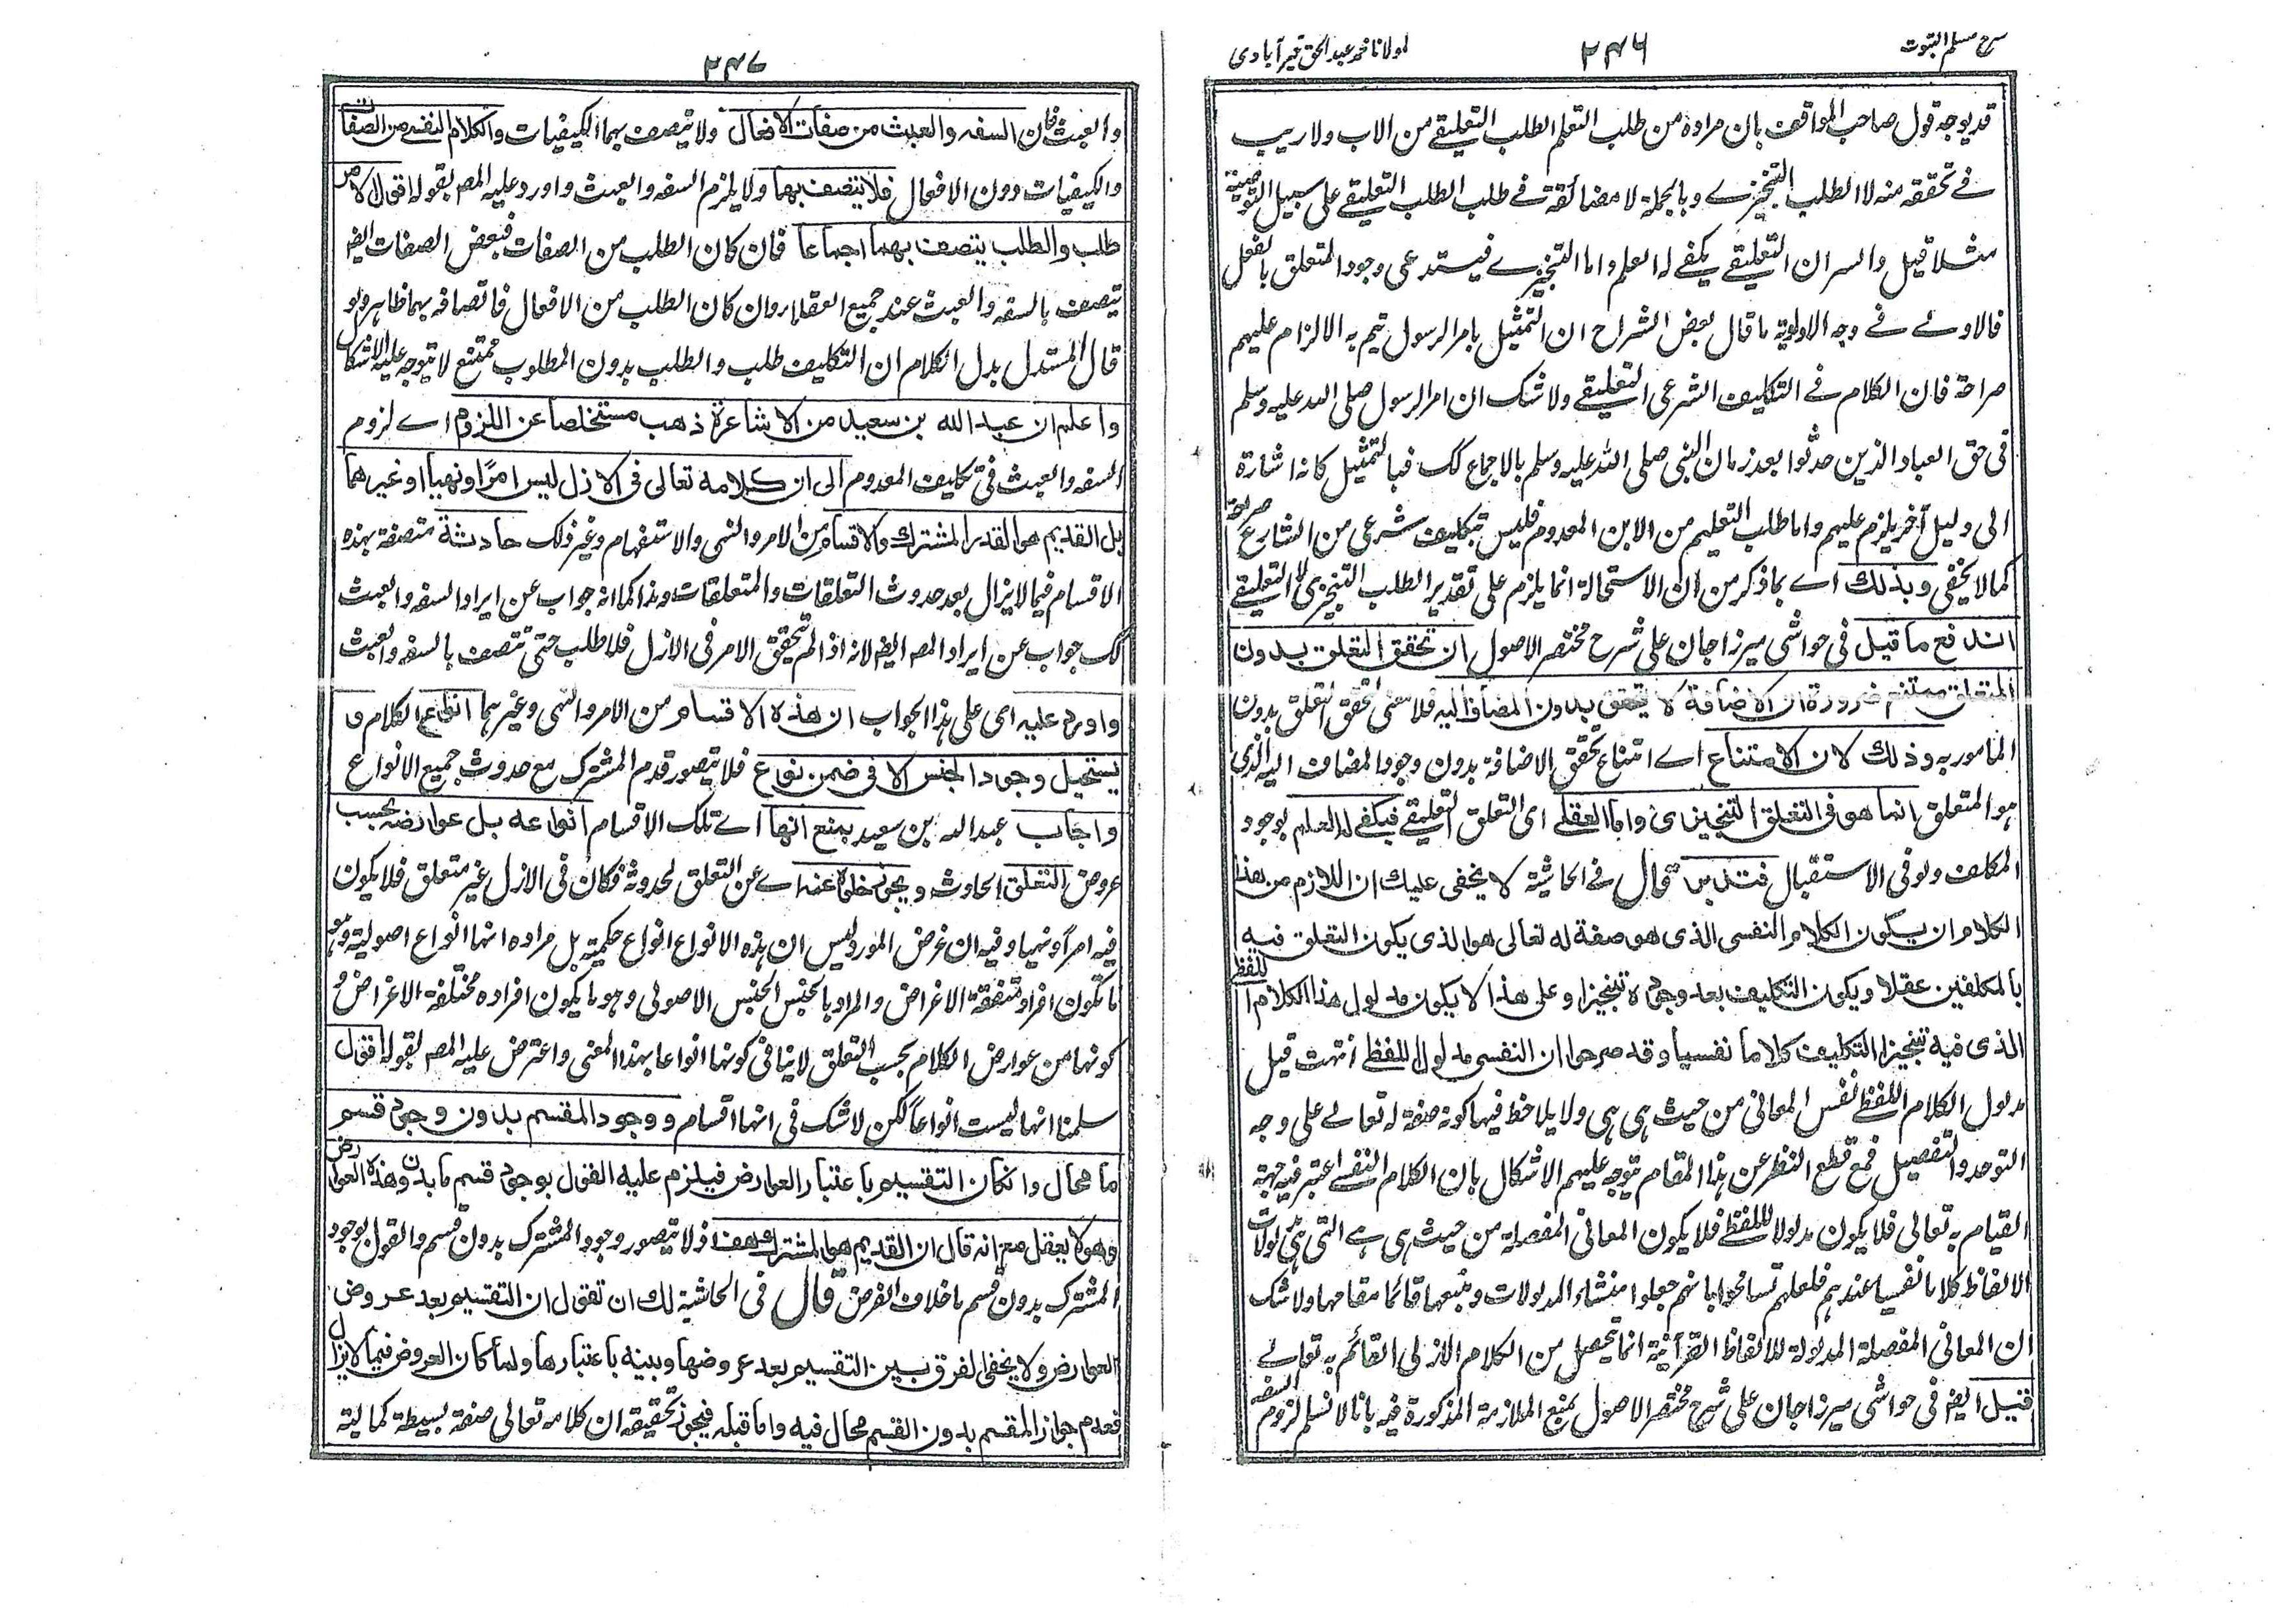 شرح مسلم الثبوت
٢٤٦
مولانا محمد عبد الحق خيرآبادى
قد يوجه قول صاحب المواقف بان مراده من طلب التعلم الطلب التعليقے من الاب ولا ريب
فے تحققه منه لا الطلب التنجيزے وبالجملة لا مضائقة فے طلب الطلب التعليقے على سبيل التوصية
مثلا قيل والسر ان التعليقے يكفے له العلم واما التنجيزے فيستدعى وجود المتعلق بالفعل
فالاولے فے وجه الاولوية ما قال بعض الشراح ان التمثيل بامر الرسول يتم به الالزام عليهم
صراحة فان الكلام فے التكليف الشرعى التعليقے ولا شك ان امر الرسول صلى الله عليه وسلم
فى حق العباد الذين حدثوا بعد زمان النبى صلى الله عليه وسلم بالاجماع كك فبالتمثيل كانه اشارة
الى دليل آخر يلزم عليهم واما طلب التعليم من الابن المعدوم فليس بتكليف شرعى من الشارع صريحة
كما لا يخفى وبذلك اے بما ذكر من ان الاستحالة انما يلزم على تقدير الطلب التنجيزى لا التعليقے
اندفع ما قيل فى حواشى ميرزا جان على شرح مختصر الاصول ان تحقق التعلق بدون
المتعلق ممتنع ضرورة ان الاضافة لا يتحقق بدون المضاف اليه فلا معنى لتحقق التعلق بدون
المامور به وذلك لان الامتناع اے امتناع تحقق الاضافة بدون وجود المضاف اليه الذى
هو المتعلق انما هو فى التعلق التنجيزى واما العقلے اى التعلق التعليقے فيكفے له العلم بوجود
المكلف ولو فى الاستقبال فتدبر قال فے الحاشية لا يخفى عليك ان اللازم من هذا
الكلام ان يكون الكلام النفسى الذى هو صفة له تعالى هو الذى يكون التعلق فيه
بالمكلفين عقلا ويكون التكليف بعد وجوده تنجيزا وعلى هذا لا يكون مدلول هذا الكلام اللفظ
الذى فيه تنجيز التكليف كلاما نفسيا وقد صرحوا ان النفسى مدلول اللفظ انتهت قيل
مدلول الكلام اللفظے نفس المعانى من حيث هى هى ولا يلاحظ فيها كونه صفة له تعالے على وجه
التوحد والتفصيل فمع قطع النظر عن هذا المقام يتوجه عليهم الاشكال بان الكلام النفسے اعتبر فيه جهة
القيام به تعالى فلا يكون مدلولا للفظے فلا يكون المعانى المفصلة من حيث هى هے التى هى مدلولات
الالفاظ كلاما نفسيا عندهم فلعلهم تسامحوا بانهم جعلوا منشاء المدلولات ومنبعها قائما مقامها ولا شك
ان المعانى المفصلة المدلولة للالفاظ القرآنية انما يحصل من الكلام الازلى القائم به تعالے
قيل ايضا فى حواشى ميرزا جان على شرح مختصر الاصول بمنع الملازمة المذكورة فيه بانا لا نسلم لزوم السفه
٢٤٧
والعبث فان السفه والعبث من صفات الافعال ولا يتصف بهما الكيفيات والكلام النفسے من الصفات
والكيفيات دون الافعال فلا يتصف بهما ولا يلزم السفه والعبث واورد عليه المصه بقوله اقول الامر
طلب والطلب يتصف بهما اجماعا فان كان الطلب من الصفات فبعض الصفات ايضا
يتصف بالسفه والعبث عند جميع العقلاء وان كان الطلب من الافعال فاتصافه بهما ظاهر ولو
قال المستدل بدل الكلام ان التكليف طلب والطلب بدون المطلوب ممتنع لا يتوجه عليه الاشكال
واعلم ان عبد الله بن سعيد من الاشاعرة ذهب مستخلصا عن اللزوم اے لزوم
السفه والعبث فى تكليف المعدوم الى ان كلامه تعالى فى الازل ليس امرا ونهيا او غيرهما
بل القديم هو القدر المشترك والاقسام من الامر والنهى والاستفهام وغير ذلك حادثة متصفة بهذه
الاقسام فيما لا يزال بعد حدوث التعلقات والمتعلقات وهذا كما انه جواب عن ايراد السفه والعبث
كك جواب عن ايراد المصه ايضا لانه اذا لم يتحقق الامر فى الازل فلا طلب حتى تتصف بالسفه والعبث
واورد عليه اى على هذا الجواب ان هذه الاقسام من الامر والنهى وغيرهما انواع الكلام و
يستحيل وجود الجنس الا فى ضمن نوع فلا يتصور قدم المشترك مع حدوث جميع الانواع
واجاب عبد الله بن سعيد بمنع انها اے تلك الاقسام انواعه بل عوارضه بحسب
عروض التعلق الحادث ويجوز خلوه عنه اے عن التعلق لحدوثه فكان فى الازل غير متعلق فلا يكون
فيه امرا ونهيا وفيه ان غرض المورد ليس ان هذه الانواع انواع حكمية بل مراده انها انواع اصولية وهو
ما تكون افراده متفقة الاغراض والمراد بالجنس الجنس الاصولى وهو ما يكون افراده مختلفة الاغراض و
كونها من عوارض الكلام بحسب التعلق لا ينافى كونها انواعا بهذا المعنى واعترض عليه المصه بقوله اقول
سلمنا انها ليست انواعا لكن لا شك فى انها اقسام ووجود المقسم بدون وجود قسم
ما محال وان كان التقسيم باعتبار العوارض فيلزم عليه القول بوجود قسم ما بدون هذه العوارض
وهو لا يعقل مع انه قال ان القديم هو المشترك هف اذ لا يتصور وجود المشترك بدون قسم والقول بوجود
المشترك بدون قسم ما خلاف الفرض قال فى الحاشية لك ان تقول ان التقسيم بعد عروض
العوارض ولا يخفى الفرق بين التقسيم بعد عروضها وبينه باعتبارها ولما كان العروض فيما لا يزال
فعدم جواز المقسم بدون القسم محال فيه واما قبله فيجوز تحقيقه ان كلامه تعالى صفة بسيطة كمالية